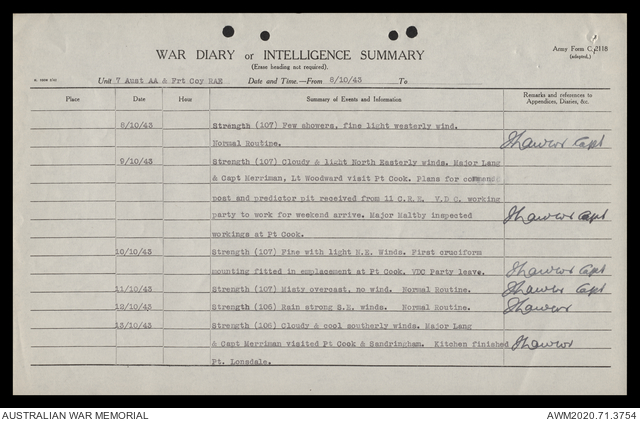 Army Form C. 2118
(adapted.)
WAR DIARY or INTELLIGENCE SUMMARY
(Erase heading not required).
Unit 7 Aust AA & Frt Coy RAE Date and Time.—From 8/10/43 To
Place Date Hour Summary of Events and Information Remarks and references to Appendices, Diaries, &c.
8/10/43 Strength (107) Few showers, fine light westerly wind.
Normal Routine. Capt
9/10/43 Strength (107) Cloudy & light North Easterly winds. Major Lang
& Capt Merriman, Lt Woodward visit Pt Cook. Plans for command
post and predictor pit received from 11 C.R.E. V.D.C. working
party to work for weekend arrive. Major Maltby inspected Capt
workings at Pt Cook.
10/10/43 Strength (107) Fine with light N.E. Winds. First cruciform
mounting fitted in emplacement at Pt Cook. VDC Party leave. Capt
11/10/43 Strength (107) Misty overcast, no wind. Normal Routine. Capt
12/10/43 Strength (106) Rain strong S.E. winds. Normal Routine.
13/10/43 Strength (106) Cloudy & cool southerly winds. Major Lang
& Capt Merriman visited Pt Cook & Sandringham. Kitchen finished
Pt. Lonsdale.
AUSTRALIAN WAR MEMORIAL AWM2020.71.3754